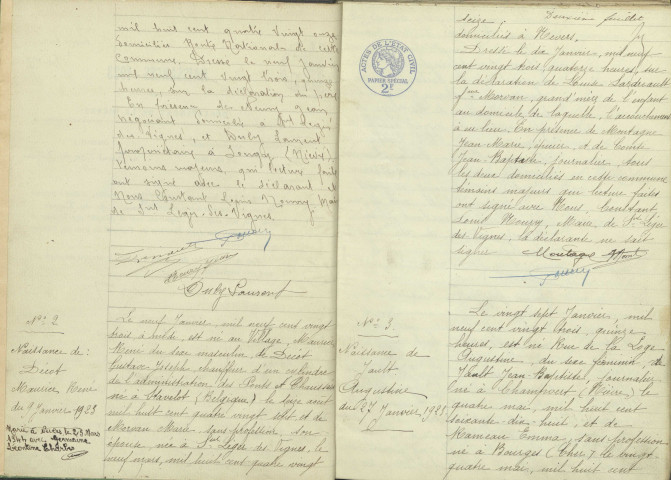 mil huit cent quatre vingt onze
domiciliés Route Nationale de cette
Commune. Dressé le neuf Janvier
mil neuf cent vingt trois, 
heures, sur la déclaration du père
En présence de Jean,
négociant domicilié à St Léger
des Vignes, et Duly Laurent
propriétaire à (Nièvre)
témoins majeurs, qui lecture faite
ont signé avec le déclarant et
Nous Constant Louis Mourry Maire
de Saint Léger-des-Vignes.
Duly Laurent
No 2
Naissance de:
Dicot
Maurice René
du 9 Janvier 1923
Marié à le 23 Mars
1944 avec Germaine
Léontine
Le neuf Janvier, mil neuf cent vingt
trois à heures, est né au Village, Maurice
René du sexe masculin, de Dicot
Gustave Joseph, chauffeur d'un cylindre
de l'administration des Ponts et Chaussées
né à Stavelot (Belgique) le seize août
mil huit cent quatre vingt sept et de
Morvan Marie sans profession, son
épouse, née à Saint Léger des Vignes, le
neuf mars, mil huit cent quatre vingt
seize. Deuxième feuillet
domiciliés à Nevers.
Dressé le dix Janvier, mil neuf
cent vingt trois, quatorze heures, sur
la déclaration de Louise
fme Morvan, grand'mère de l'enfant
au domicile de laquelle, l'accouchement
a eu lieu. En présence de Montagne
Jean-Marie, et de Comte
Jean-Baptiste, journalier, tous
les deux domiciliés en cette commune
témoins majeurs qui lecture faite
ont signé avec Nous, Constant
Louis Mourry, Maire de St Léger
des Vignes, la déclarante ne sait
signer. Montagne
ACTES DE L'ETAT CIVIL
PAPIER SPÉCIAL
2F
No 3
Naissance de
Jault
Augustine
du 27 Janvier 1923
Le vingt sept Janvier, mil
neuf cent vingt trois, quinze
heures, est né Rue de la Loge
Augustine, du sexe féminin, de
Jault Jean-Baptiste, journalier
né à Champvert (Nièvre) le
quatre mai, mil huit cent
soixante-dix-huit, et de
Rameau Emma, sans profession
née à Bourges (Cher) le vingt-
quatre mai, mil huit cent